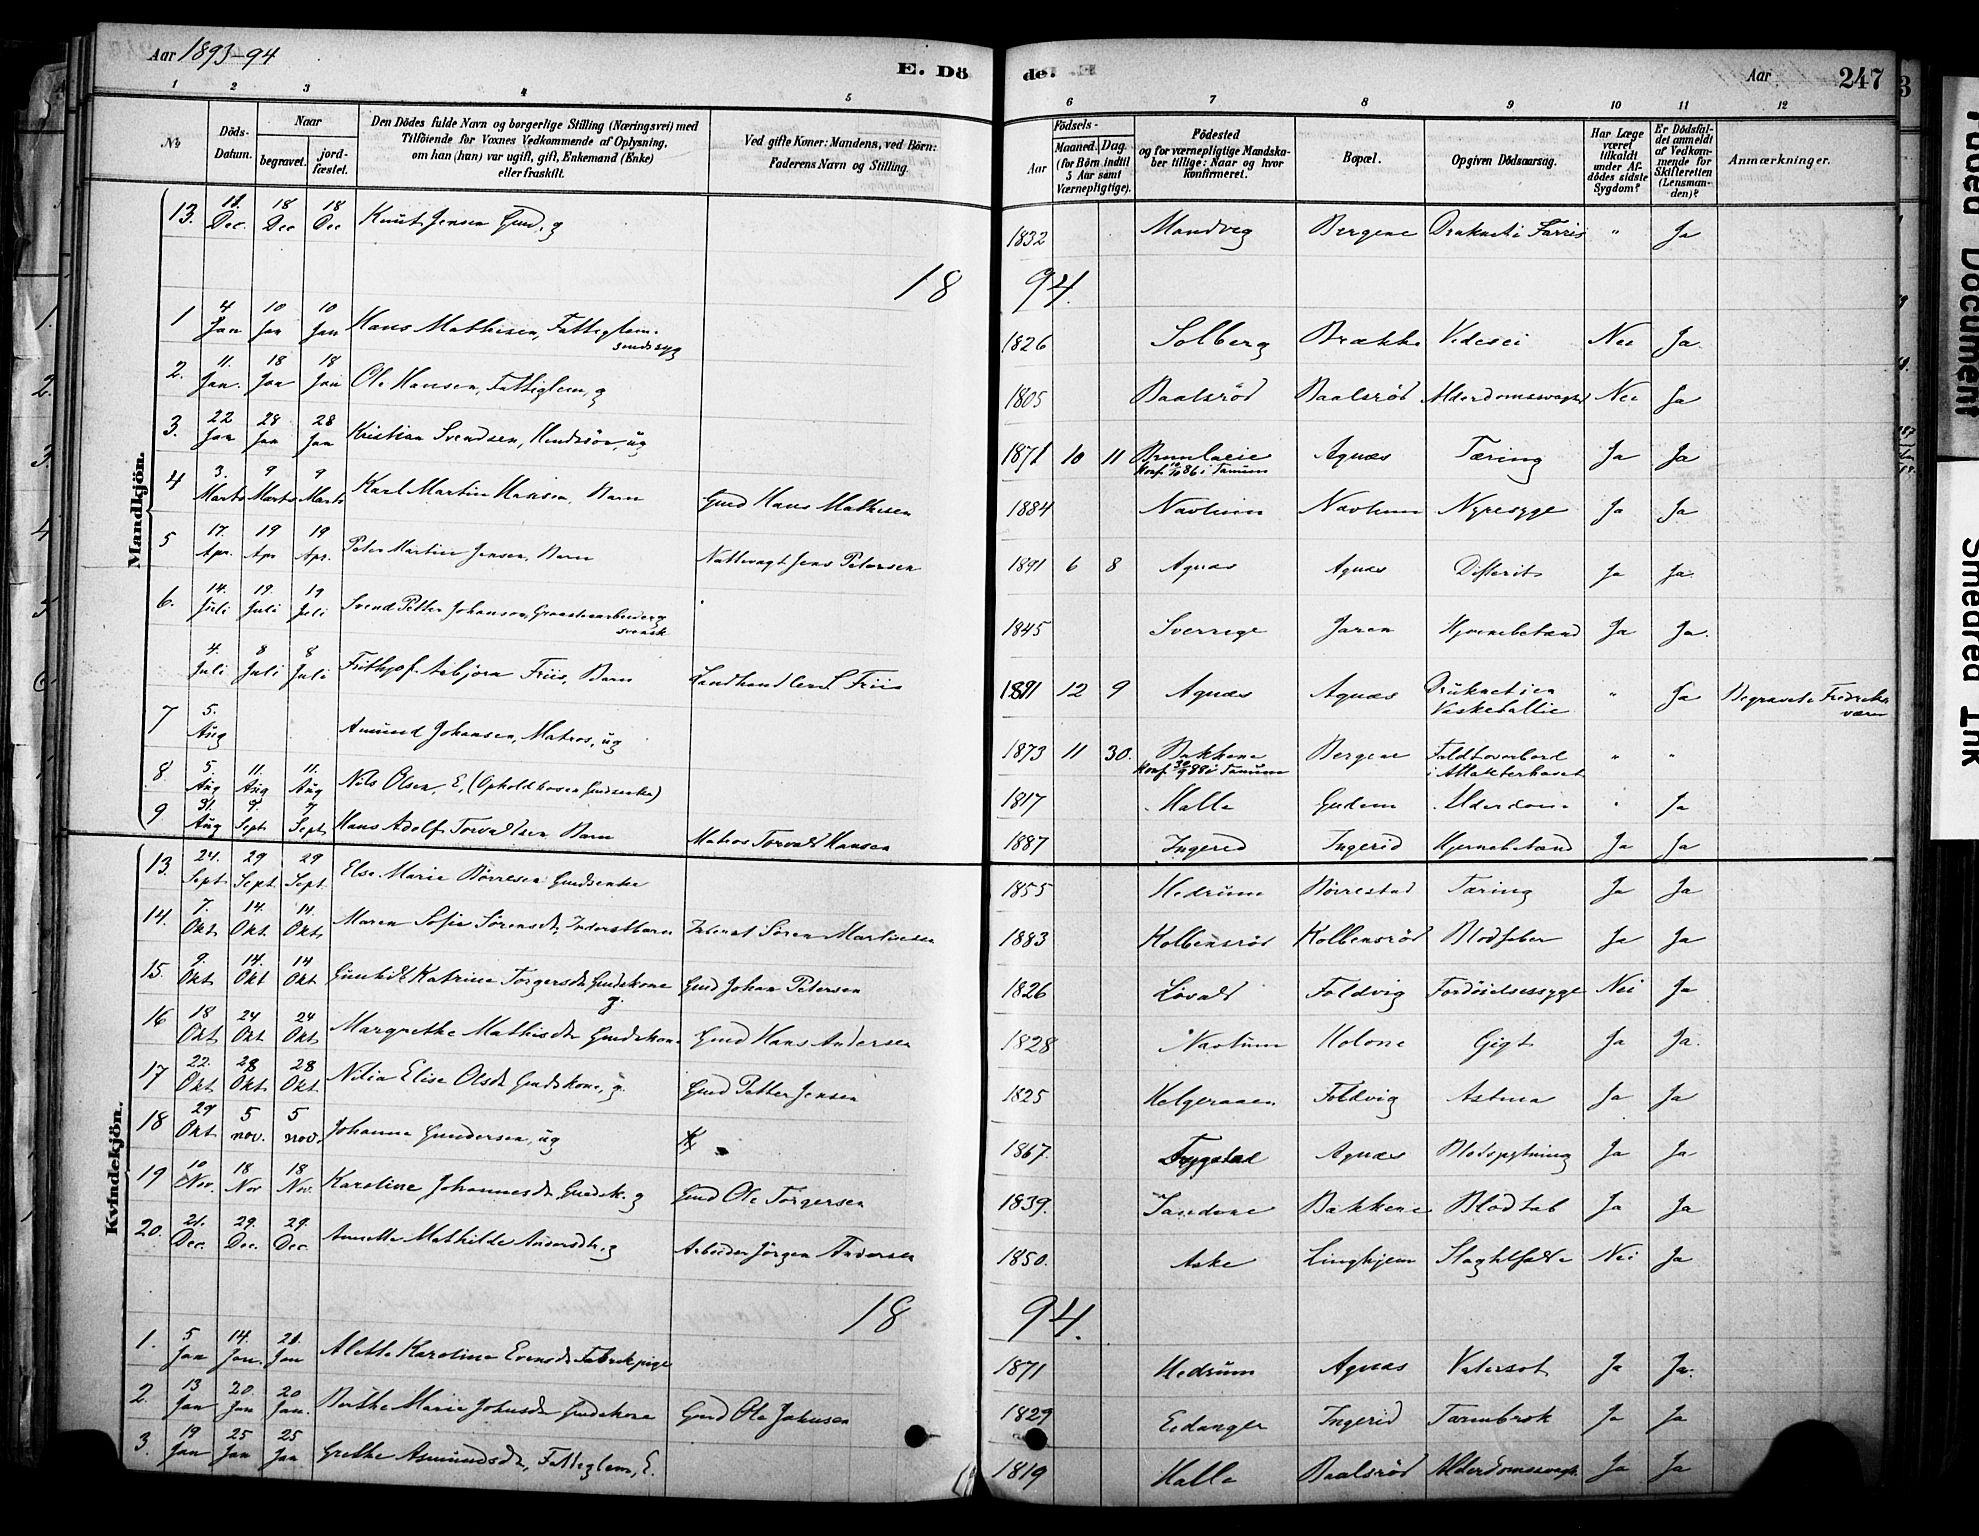 Aar 1893-94
E. Dö de.
Aar 247
1 2 3 4 5 6 7 8 9 10 11 12
No.
Döds-Datum.
Naar
begravet.
jord-fæstet.
Den Dödes fulde Navn og borgerlige Stilling (Næringsvei) med Tilföiende for Voxnes Vedkommende af Oplysning, om han (hun) var ugift, gift, Enkemand (Enke) eller fraskilt.
Ved gifte Koner: Mandens, ved Börn: Faderens Navn og Stilling.
Födsels-
Aar
Maaned. Dag.
(for Börn indtil 5 Aar samt Værnepligtige).
Födested og for værnepligtige Mandskaber tillige: Naar og hvor konfirmeret.
Bopæl.
Opgiven Dödsaarsag.
Har Læge været tilkaldt under Afdödes sidste Sygdom?
Er Dödsfaldet anmeldt af Vedkommende for Skifteretten (Lensmanden)?
Anmærkninger.
Mandkjön.
13. Dec. 18 Dec 18 Dec Knut Jensen Gmd. g 1832 Bergene " Ja
1894.
1 4 Jan 10 Jan 10 Jan Hans Mathisen, Fattiglem. sindssyg 1826 Solberg Brække Nei Ja
2. 11. Jan. 18 Jan 18 Jan Ole Hansen, Fattiglem, g 1805 Baalsröd Baalsröd Alderdomssvaghed Nei Ja
3. 22 Jan 28 Jan 28 Jan Kristian Svendsen, ug 1871 10 11 Brunlanes Konf. 86 i Tanum Agnæs Tæring Ja Ja
4 3. Marts 9 Marts 9 Marts Karl Martin Hansen, Barn Gmd Hans Mathisen 1884 Navlum Navlum Nyresyge Ja Ja
5 17. Apr. 19 Apr 19 Apr. Peter Martin Jensen, Barn Nattevagt Jens Petersen 1891 6 8 Agnæs Agnæs Difterit Ja Ja
6. 14. Juli 19. Juli 19 Juli Svend Petter Johanson, Graastensarbeider g svensk 1845 Sverrige Jaren Hjernebetænd Ja Ja.
4. Juli 8 Juli 8 Juli Frithjof Asbjörn Friis, Barn Landhandler L Friis 1891 12 9 Agnæs Agnæs Druknet i en Vaskeballie " Ja Begravet Fredriksværn
7 5. Aug Amund Johansen, Matros, ug 1873 11 30. Bakkene Konf 88 i Tanum Bergene Faldt overbord i Atlanterhavet " "
8. 5. Aug 11. Aug 11. Aug Nils Olsen, E, 1817 Halle Gudem Alderdom " Ja
9 31. Aug 9. Sept 9 Sept Hans Adolf Torvaldsen Barn Matros Torvald Hansen 1887 Ingerid Ingerid Hjernebetænd Ja Ja
Kvindekjön.
13. 24. Sept 29 Sept. 29 Sept. Else Marie Börresen Gmdsenke 1855 Hedrum Börrestad Tæring Ja Ja
14. 7. Okt 14. Okt. 14. Okt. Maren Sofie Sörensdt, Inderstbarn Inderst Sören Martinsen 1883 Kolbensröd Kolbensröd Blodfeber Ja Ja
15. 9. Okt 14. Okt 14 Okt Gunhild Katrine Torgersdt Gmdskone g. Gmd Johan Petersen 1826 Lövald Foldvig Fordöielsessyge Nei Ja
16 18 Okt 24 Okt 24 Okt Margrethe Mathisdt Gmdskone Gmd Hans Andersen 1828 Navlum Holone Gigt Ja Ja.
17 22. Okt 28 Okt 28 Okt. Nilia Elise Olsdt Gmdskone, g. Gmd Petter Jensen 1825 Helgeraaen Foldvig Astma Ja Ja
18 29 Okt 5 nov. 5 nov. Johanne Gundersen, ug 1867. Agnæs Blodspytning Ja Ja
19 10 Nov. 18 Nov 18 Nov. Karoline Johannesdt Gmdsk. g Gmd Ole Torgersen 1839. Sandene Bakkene Blodtab Ja Ja
20. 21. Dec. 29. Dec. 29. Dec. Annette Mathilde g Arbeider Jörgen Andersen 1850. Aske Linghjem Slagtilfælde Nei Ja
1894.
1. 5 Jan 14. Jan. 21 Jan Alette Karoline Evensdt Fabrikpige 1871 Hedrum Agnæs Vatersot Ja Ja.
2. 13 Jan 20. Jan 20 Jan. Berthe Marie Johnsdt Gmdskone Gmd Ole Johnsen 1829 Eidanger Ingerid Tarmbrok Ja Ja
3. 19 Jan 25 Jan 25 Jan Grethe Asmundsdt, Fattiglem, E. 1819 Halle Baalsröd Alderdomssvagh. Ja Ja
Faded Document
Smeared Ink